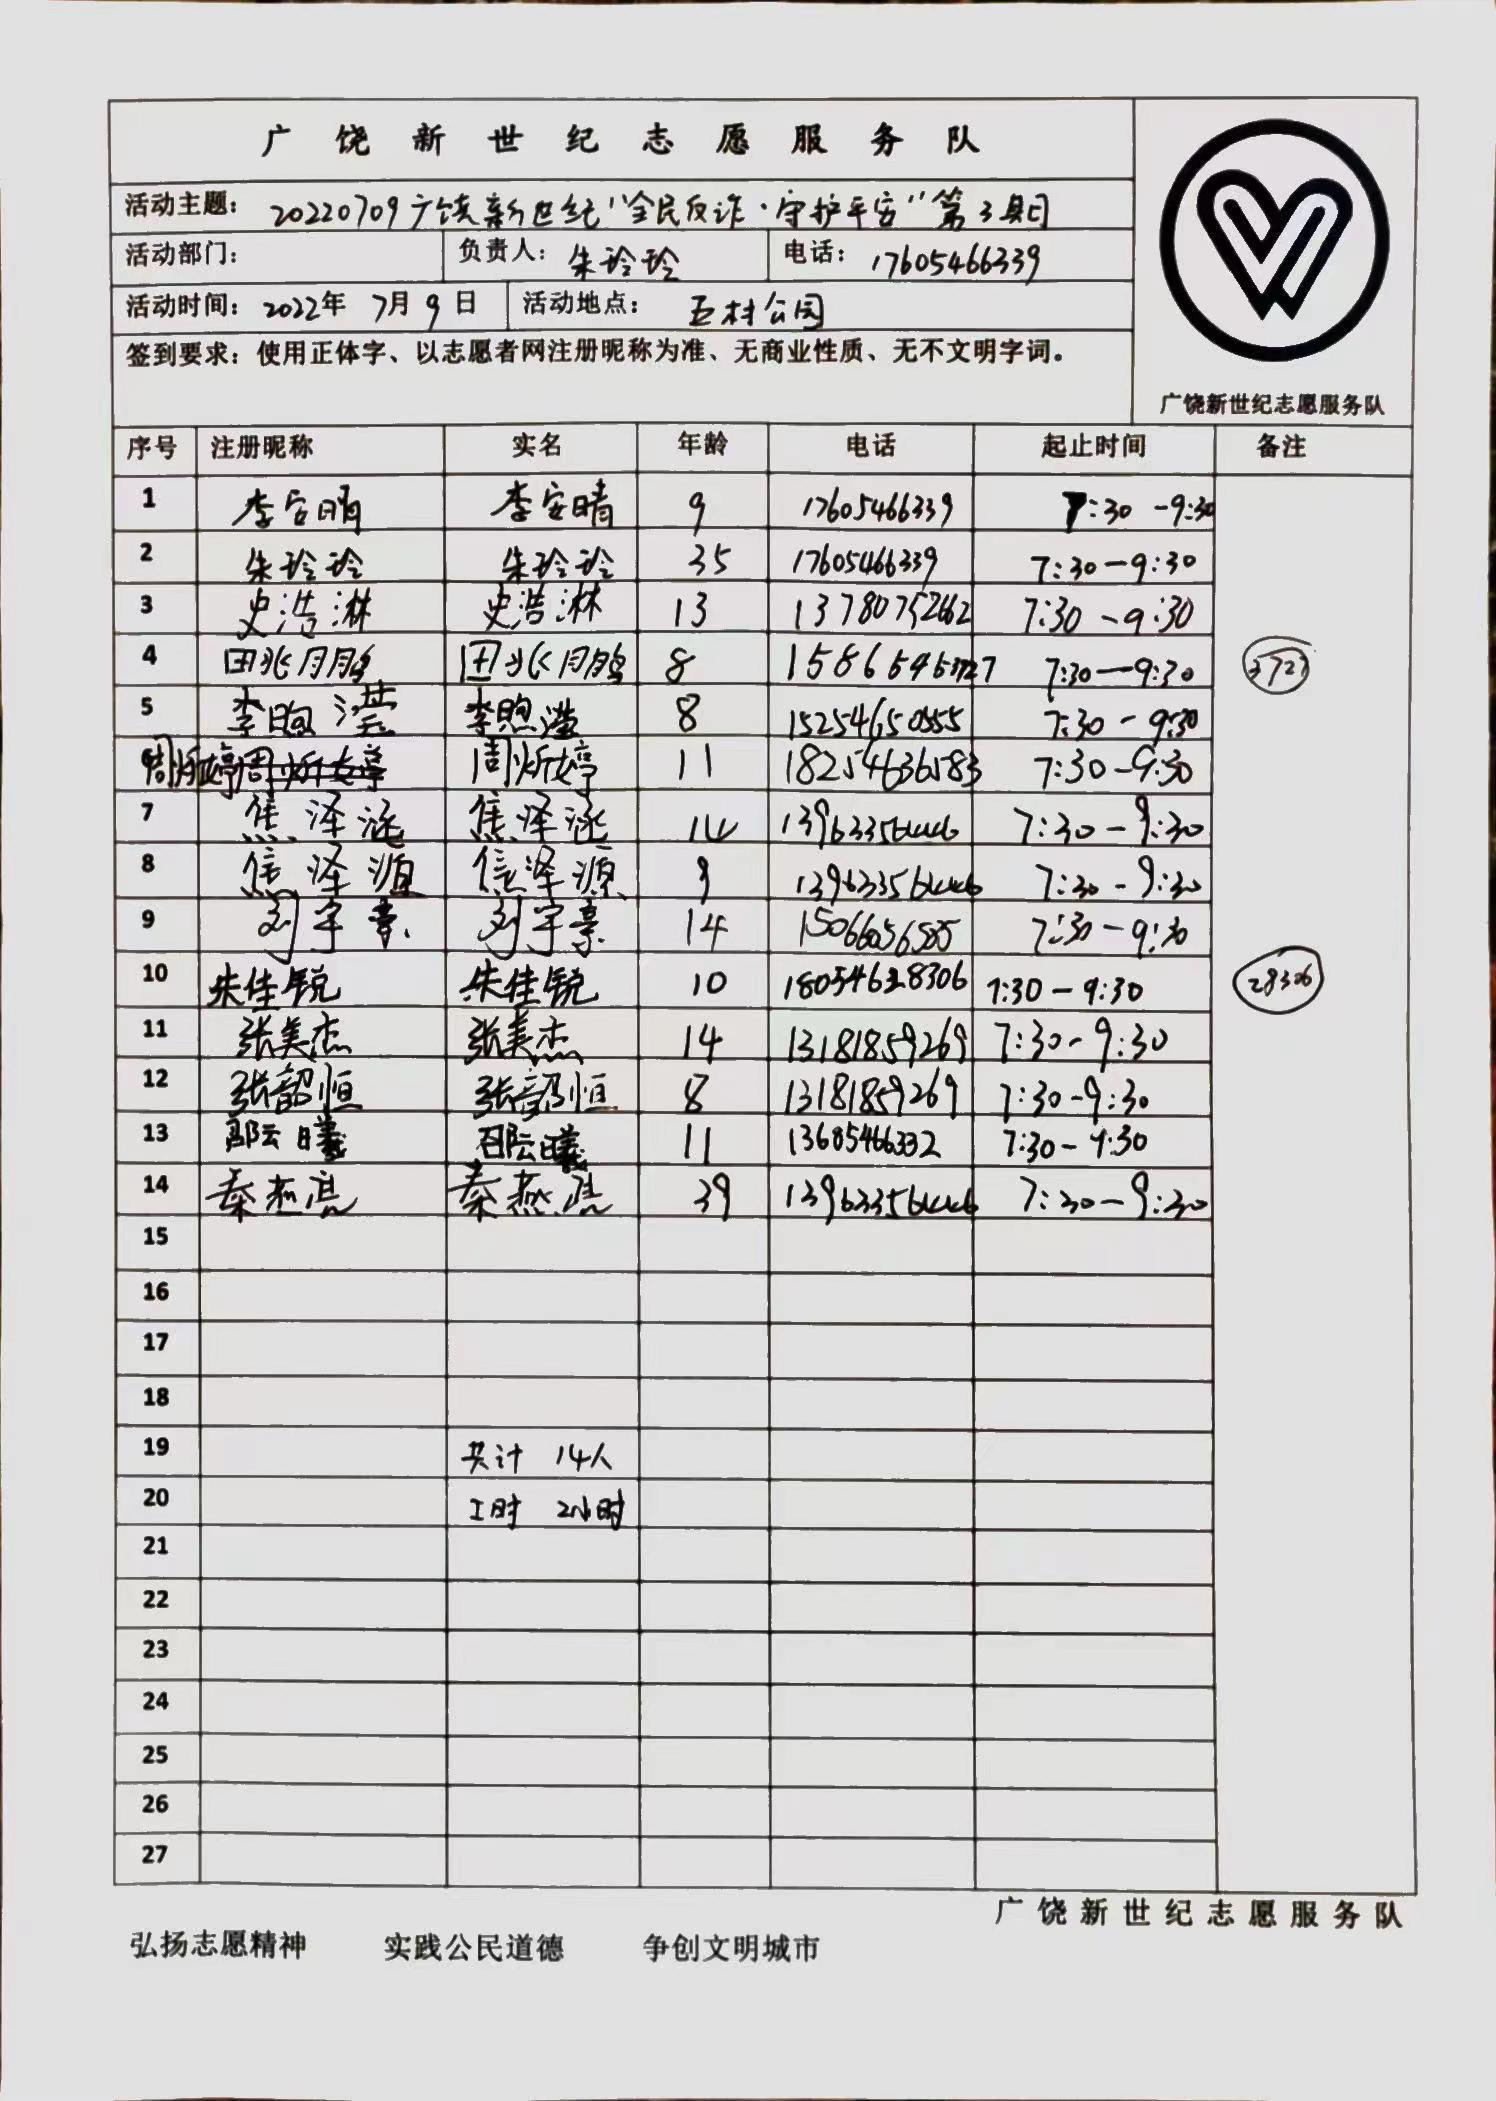 广饶新世纪志愿服务队
活动主题：20220709广饶新世纪“全民反诈·守护平安”第3期
活动部门： 负责人：朱玲玲 电话：17605466339
活动时间：2022年 7月 9 日 活动地点：王村公园
签到要求：使用正体字、以志愿者网注册昵称为准、无商业性质、无不文明字词。
广饶新世纪志愿服务队
序号 注册昵称 实名 年龄 电话 起止时间 备注
1 李安晴 李安晴 9 17605466339 7:30-9:30
2 朱玲玲 朱玲玲 35 17605466339 7:30-9:30
3 史浩淋 史浩淋 13 13780752662 7:30-9:30
4 田兆月鹏 田兆月鹏 8 7:30-9:30 3727
5 李煦滢 李煦滢 8 15254650555 7:30-9:30
6 周炘婷 周炘婷 11 18254636583 7:30-9:30
7 焦泽涵 焦泽涵 14 13963356446 7:30-9:30
8 焦泽源 焦泽源 9 13963356446 7:30-9:30
9 刘宇豪 刘宇豪 14 7:30-9:30
10 朱佳锐 朱佳锐 10 18054628306 7:30-9:30 28306
11 张美杰 张美杰 14 13181859269 7:30-9:30
12 张韶恒 张韶恒 8 13181859269 7:30-9:30
13 邵云曦 邵云曦 11 13605466332 7:30-9:30
14 秦燕亮 秦燕亮 39 13963356446 7:30-9:30
15
16
17
18
19 共计 14人
20 工时 2小时
21
22
23
24
25
26
27
广饶新世纪志愿服务队
弘扬志愿精神 实践公民道德 争创文明城市